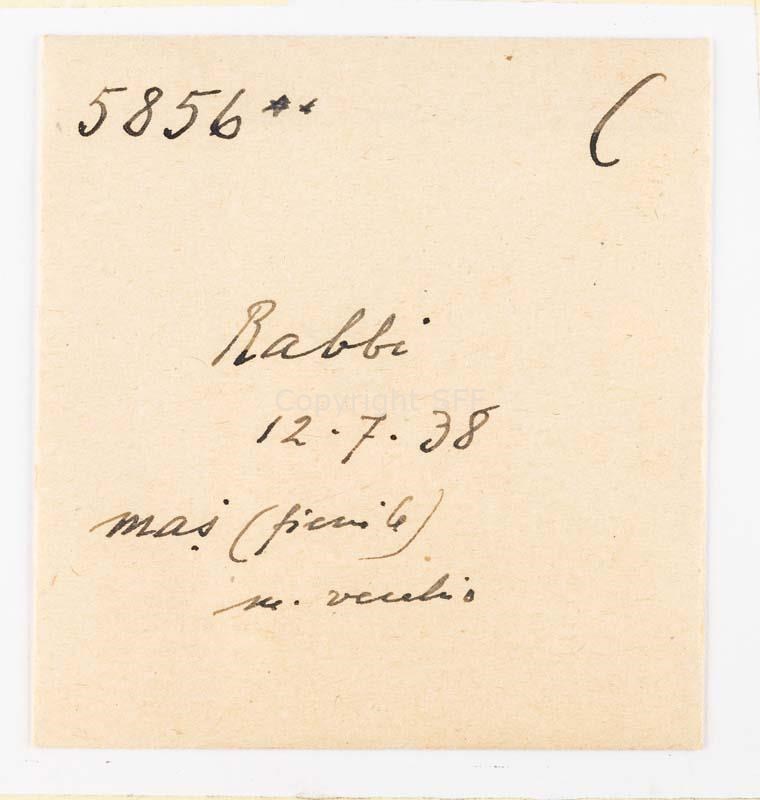 5856** (
Rabbi
Copyright SFF
12.7.38
maṡ (fienile)
m. vecchio